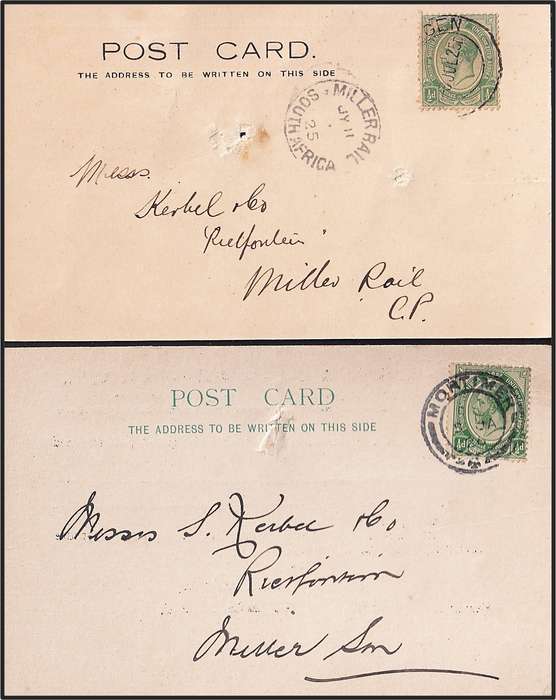 POST CARD.
THE ADDRESS TO BE WRITTEN ON THIS SIDE
GEN
JUL 25
½d
MILLER RAIL
JY 11
25
SOUTH AFRICA
Messs.
Kerbel & Co
"Rietfontein"
Miller Rail
C.P.
POST CARD
THE ADDRESS TO BE WRITTEN ON THIS SIDE
MORTIMER
JA
½d
Messrs S. Kerbel & Co
Rietfontein
Miller Stn